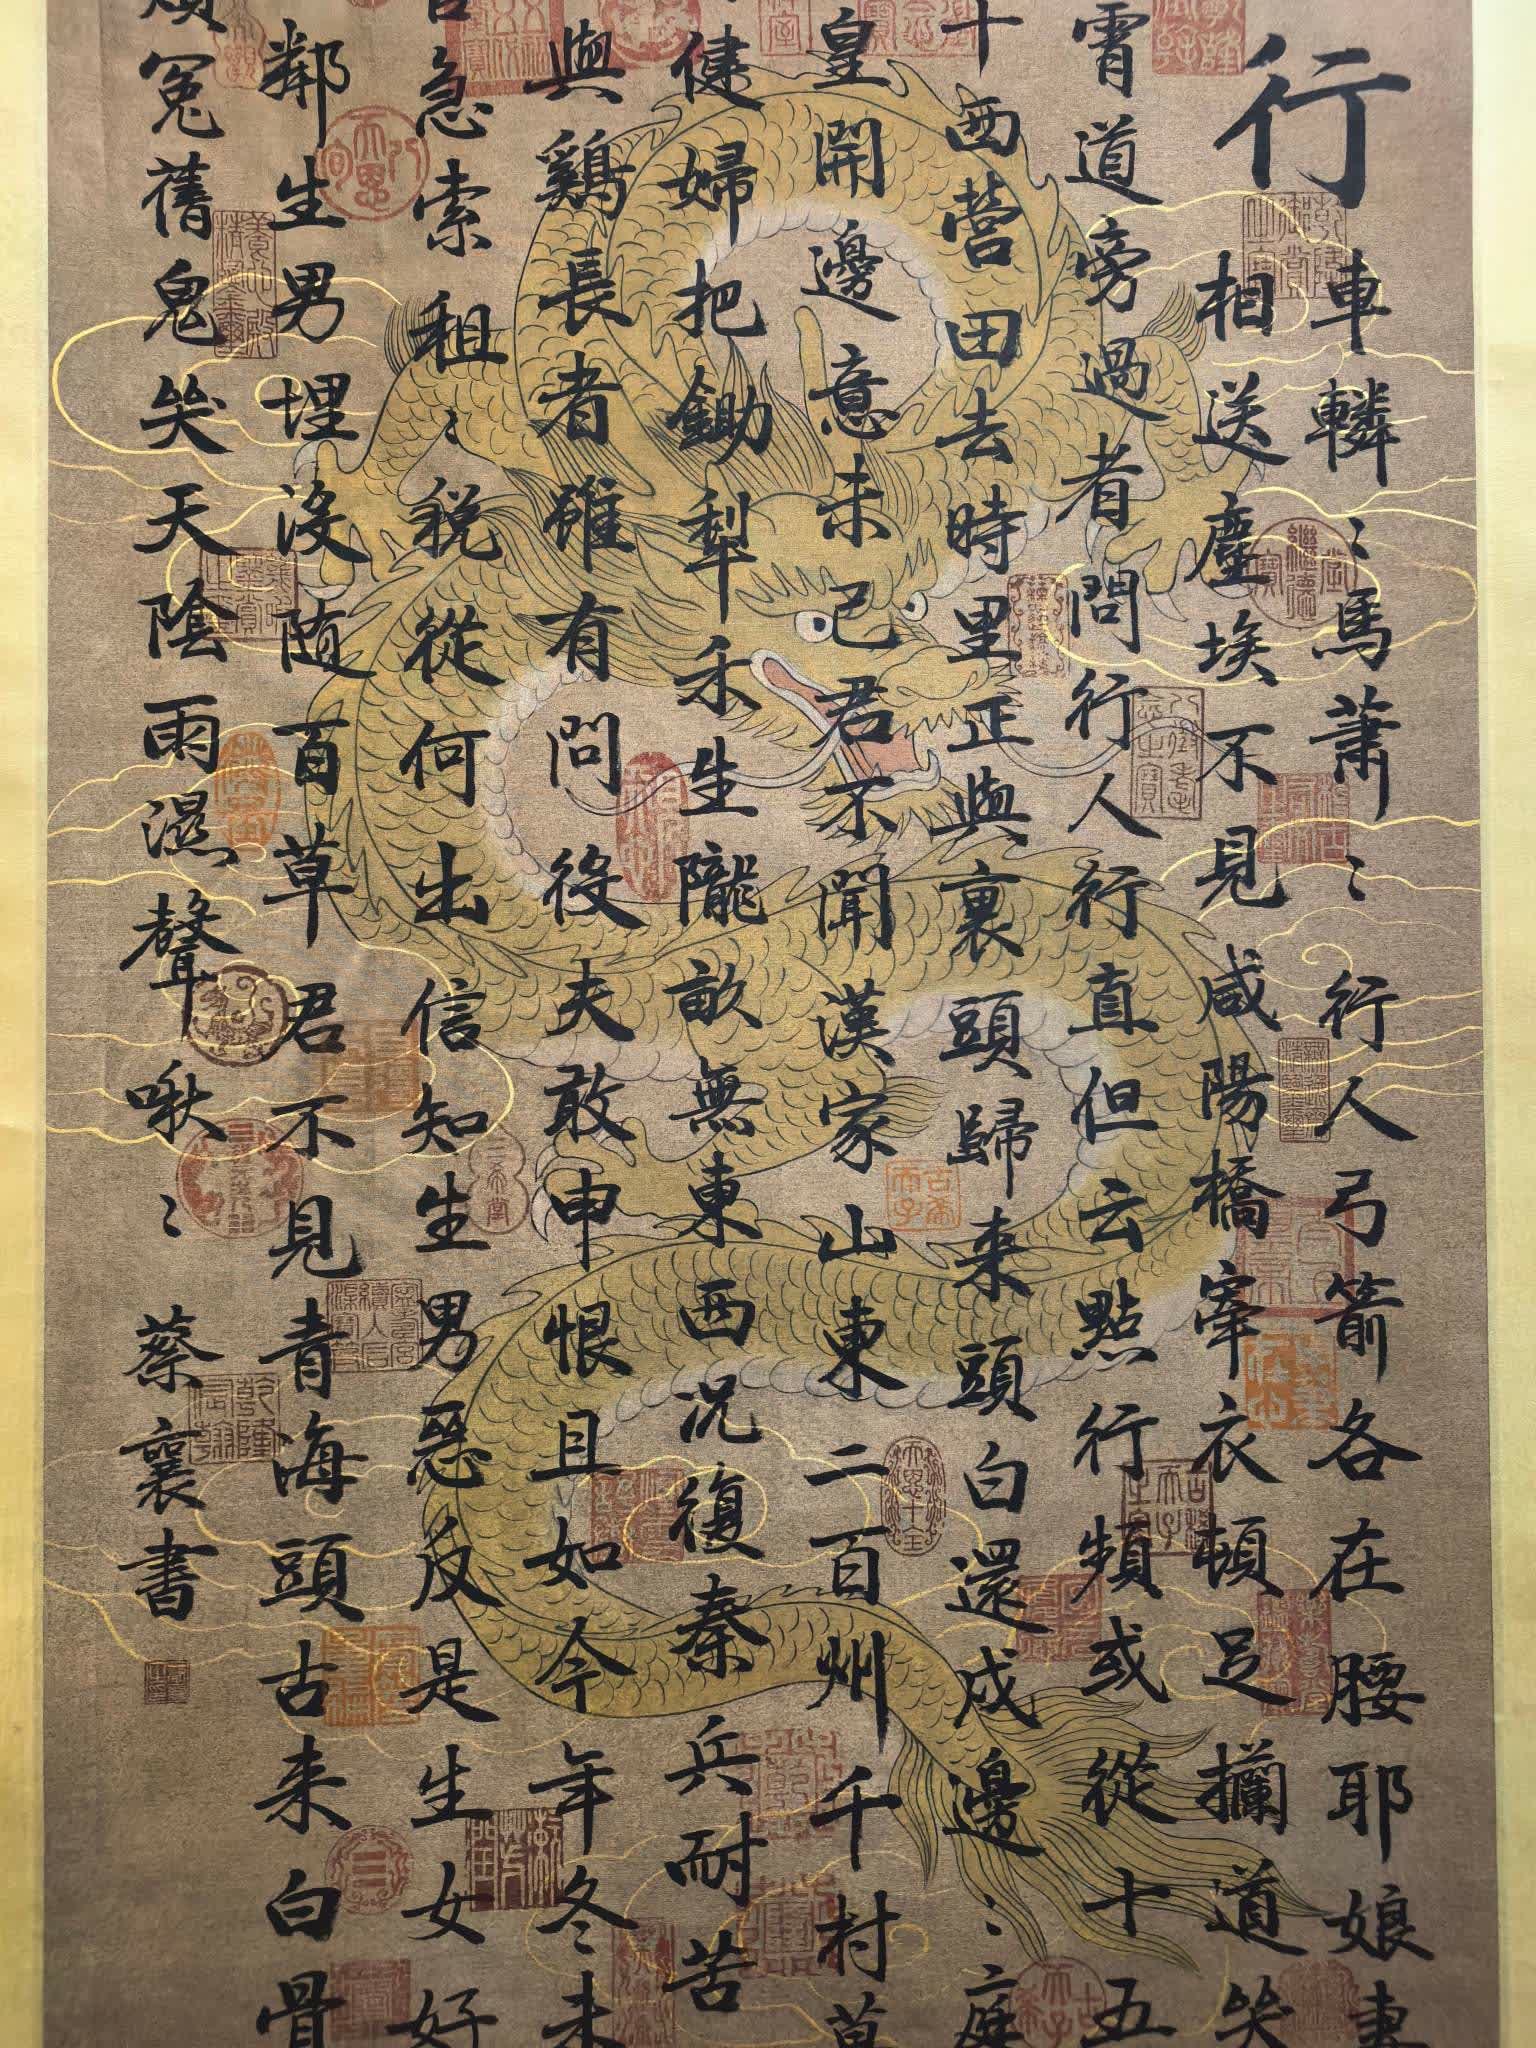 行
車轔〻馬蕭〻行人弓箭各在腰耶娘妻
相送塵埃不見咸陽橋牽衣頓足攔道哭
霄道旁過者問行人行直但云點行頻或從十五
十西營田去時里正與裹頭歸来頭白還戍邊〻庭
皇開邊意未已君不聞漢家山東二百州千村萬
健婦把鋤犁禾生隴畝無東西況復秦兵耐苦
與鷄長者雖有問役夫敢申恨且如今年冬未
急索租〻税從何出信知生男惡反是生女好
鄰生男埋沒随百草君不見青海頭古来白骨
煩冤舊鬼哭天陰雨濕聲啾〻蔡襄書
古希天子
三希堂